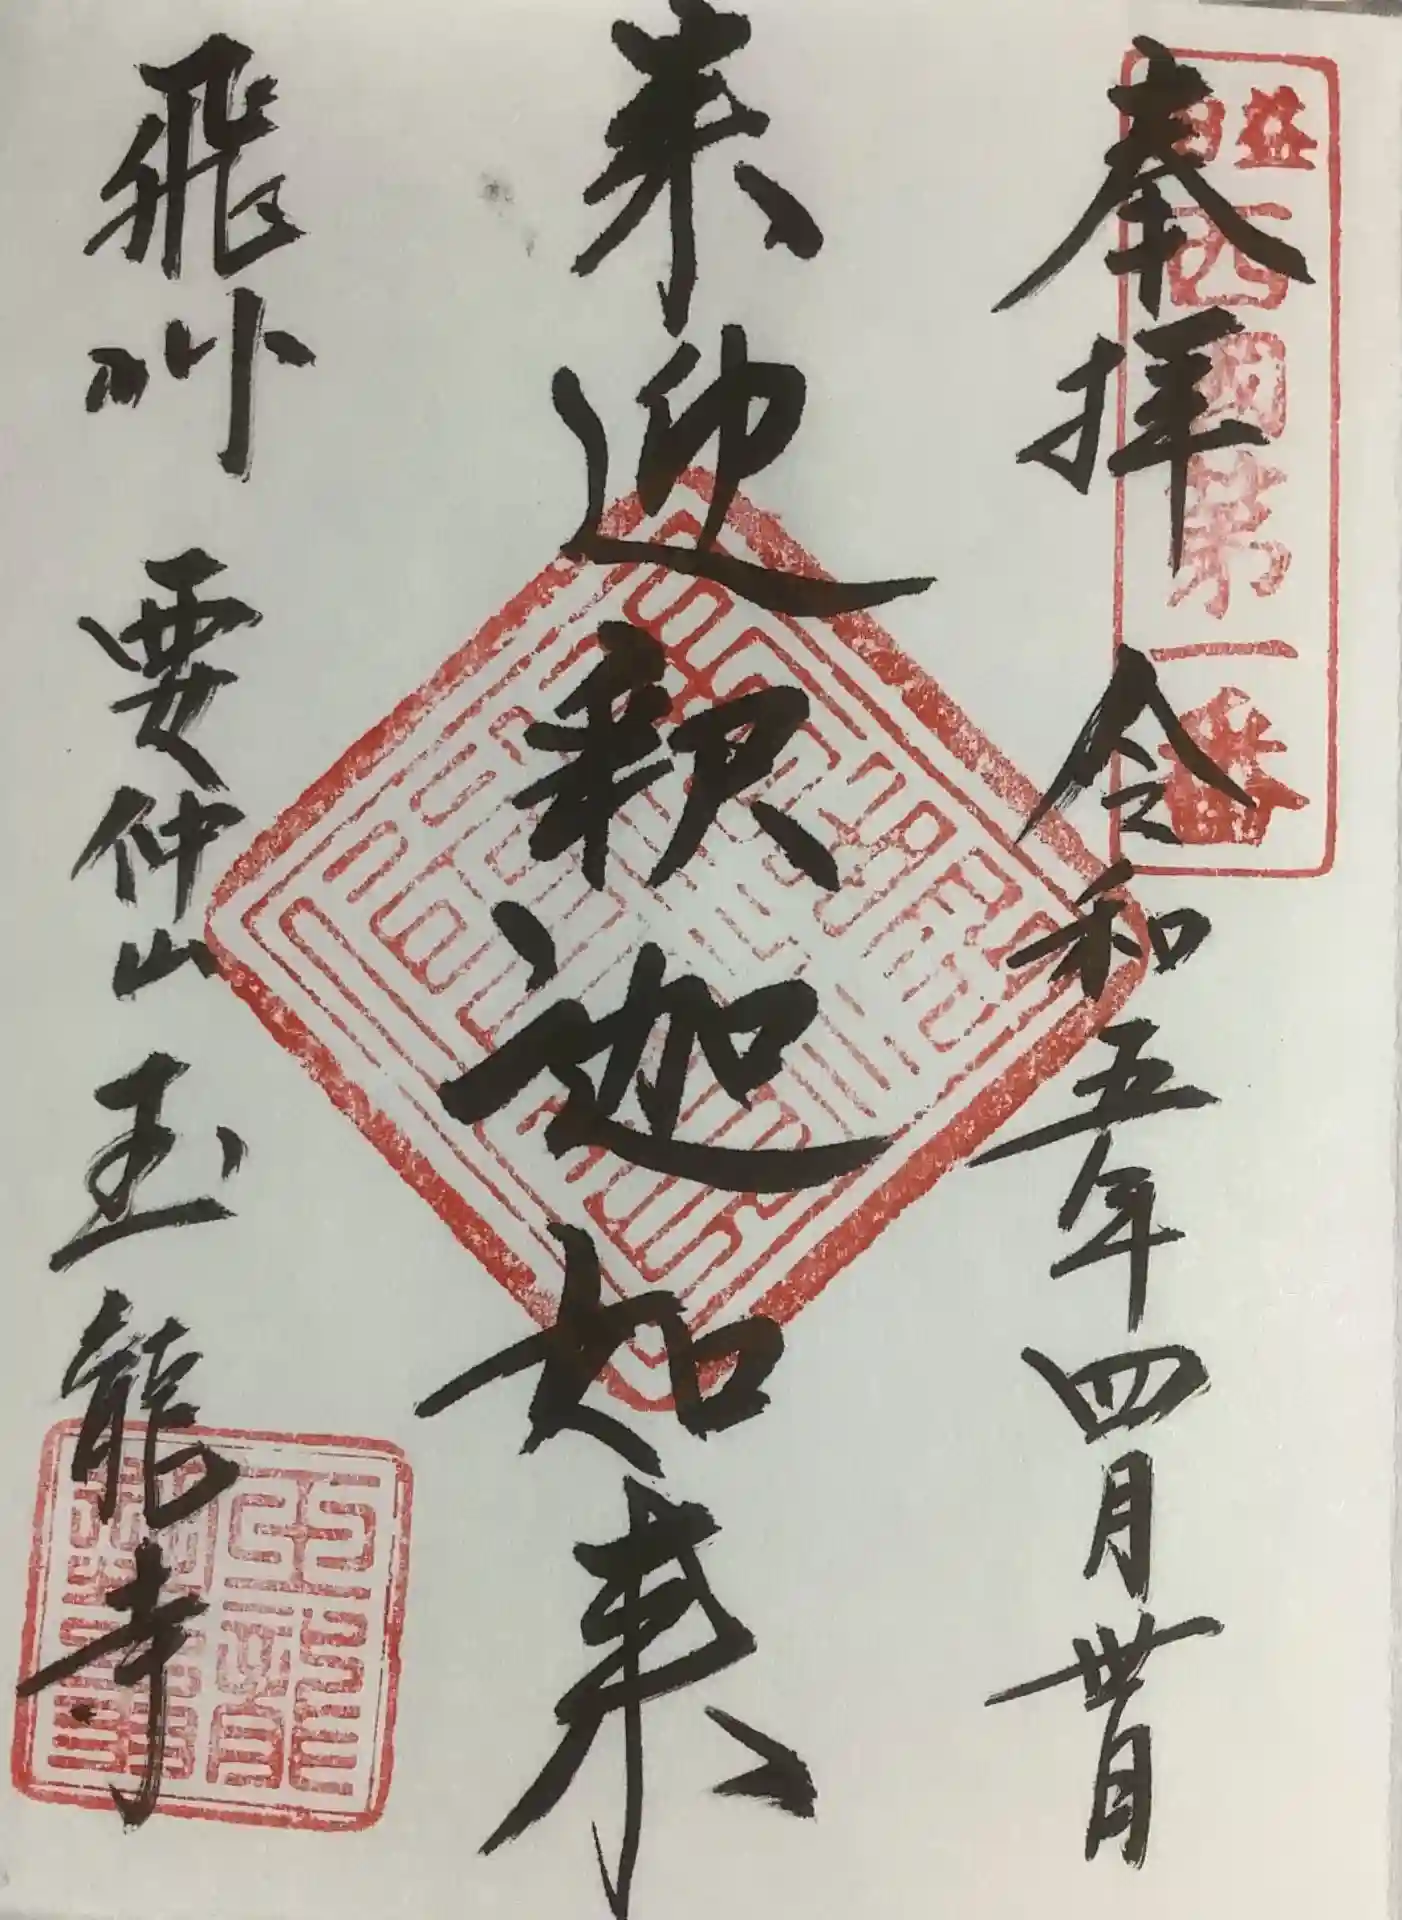 益田西國第一番
奉拝 令和五年四月丗日
来迎釈迦如来
飛州 要仲山 玉龍寺